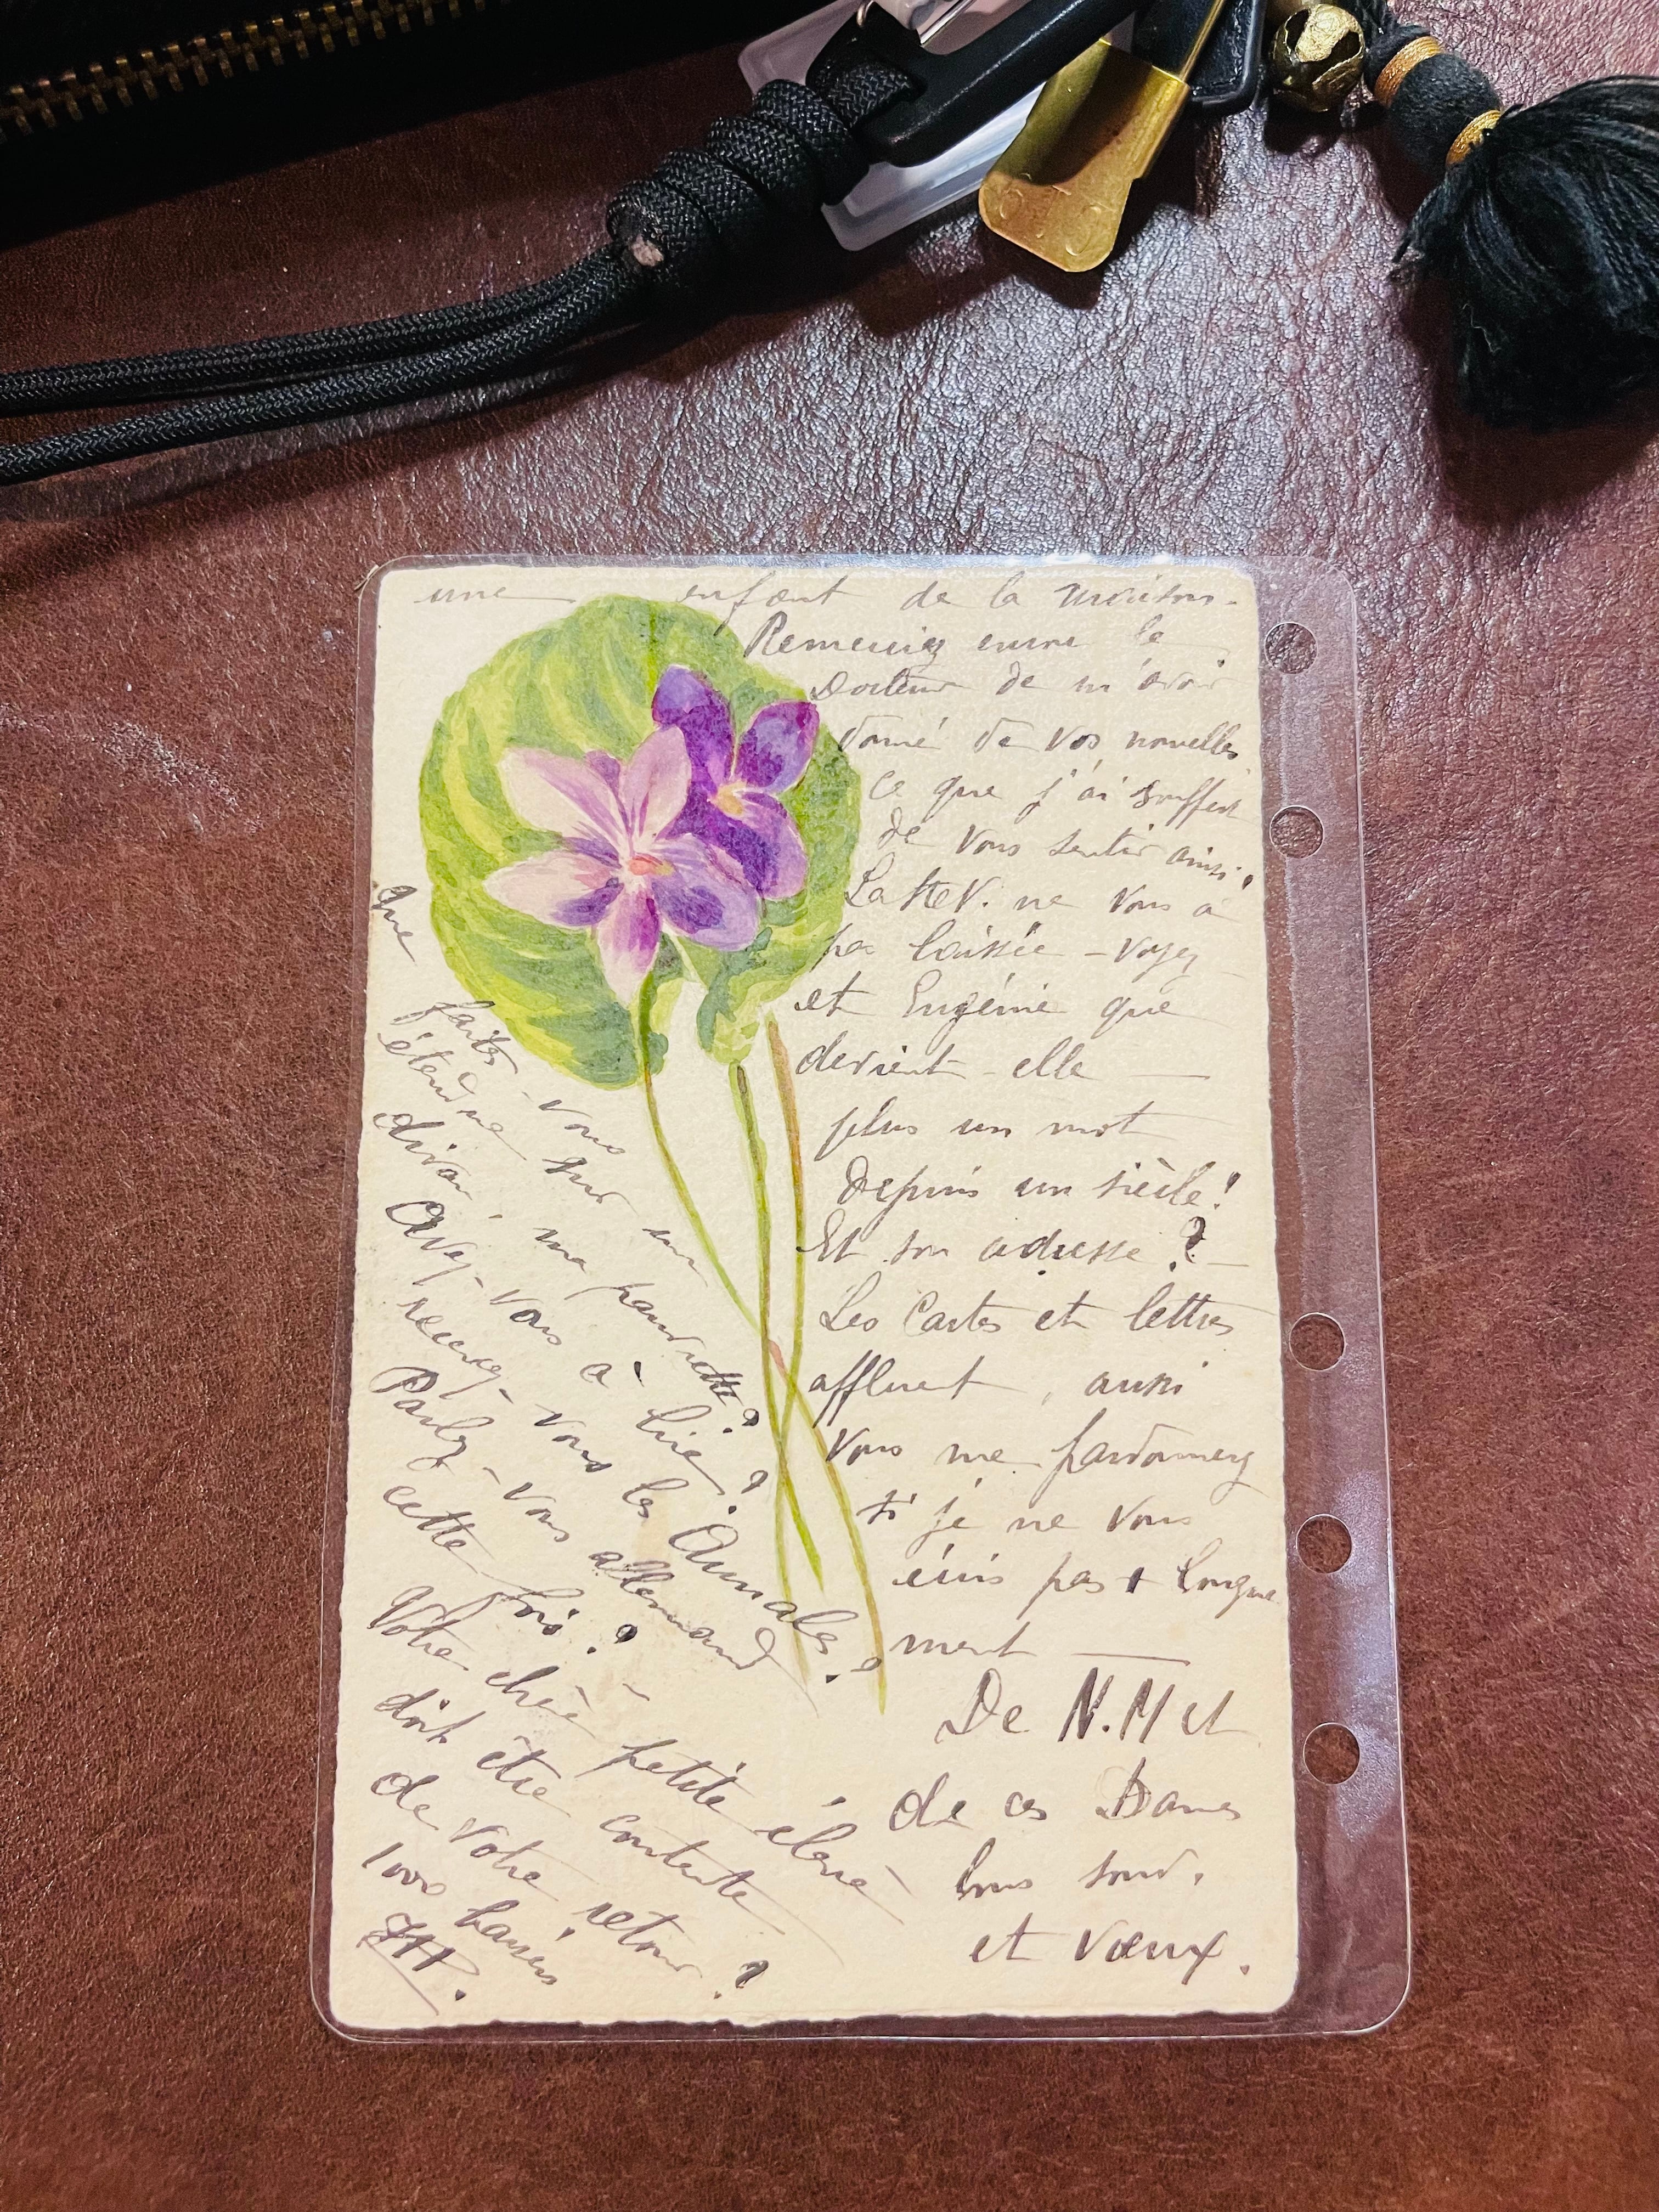 une enfant de la maison.
Remerciez encore le
Docteur de m'avoir
donné de vos nouvelles
ce que j'ai souffert
de vous sentir ainsi!
La Ste V. ne vous a
pas laissée - voyez
et Eugénie que
devient-elle —
plus un mot
depuis un siècle!
Et son adresse ? —
Les Cartes et lettres
affluent, aussi
vous me pardonnez
si je ne vous
écris pas + longue
ment —
De N. M et
de ces Dames
bons souv.
et vœux.
que
faites-vous
étendue sur un
divan, ma pauvrette?
Avez-vous à lire?
recevez-vous les Annales?
Parlez-vous allemand
cette fois? -
Votre chère petite élève
doit être contente
de votre retour?
1000 baisers